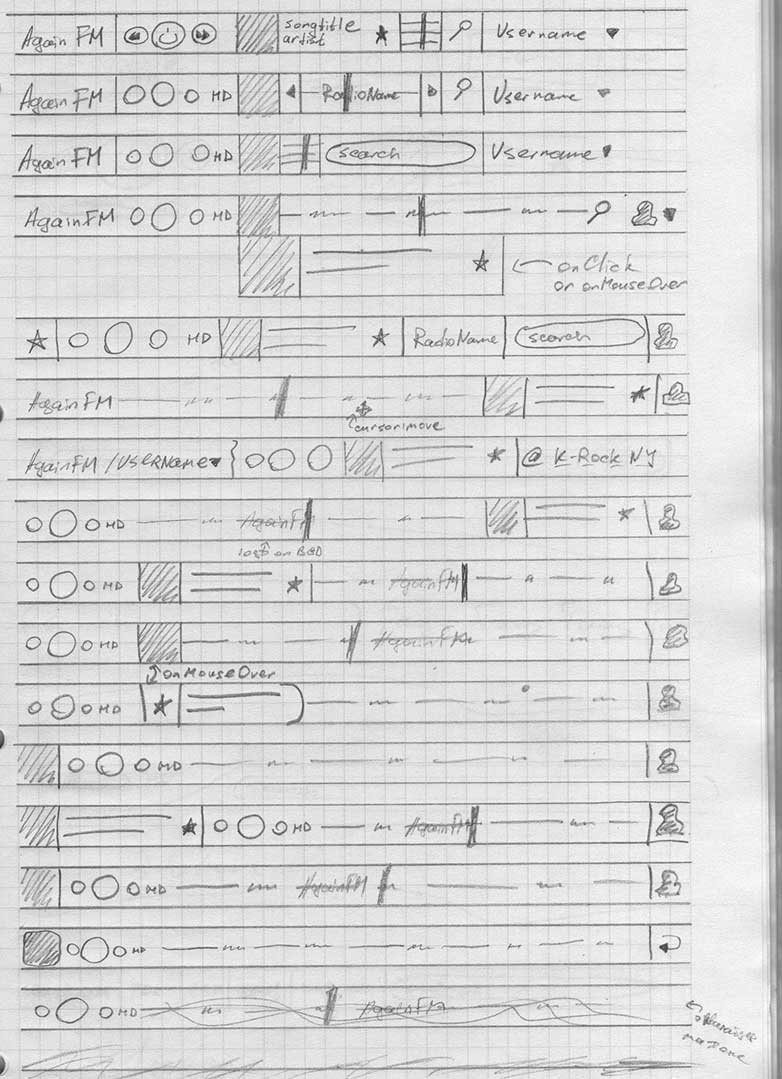 Again FM songtitle Username
artist
Again FM HD RadioName Username
Again FM HD search Username
AgainFM HD
onClick
or onMouseOver
HD RadioName search
AgainFM
cursor:move
AgainFM /USERName @ K-Rock NY
HD AgainFM
HD AgainFM
HD AgainFM
onMouseOver
HD
HD
HD AgainFM
HD AgainFM
HD
HD AgainFM